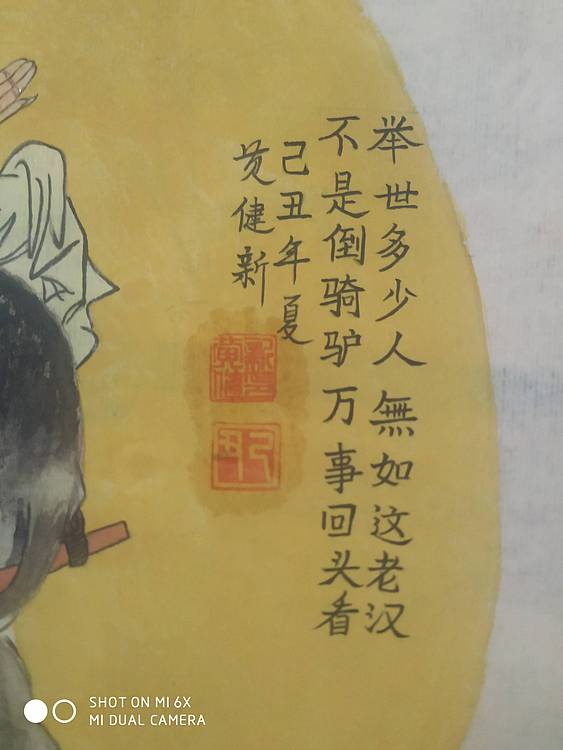 举世多少人 無如这老汉
不是倒骑驴 万事回头看
己丑年夏
黄健新
黄健新印
己丑
SHOT ON MI 6X
MI DUAL CAMERA